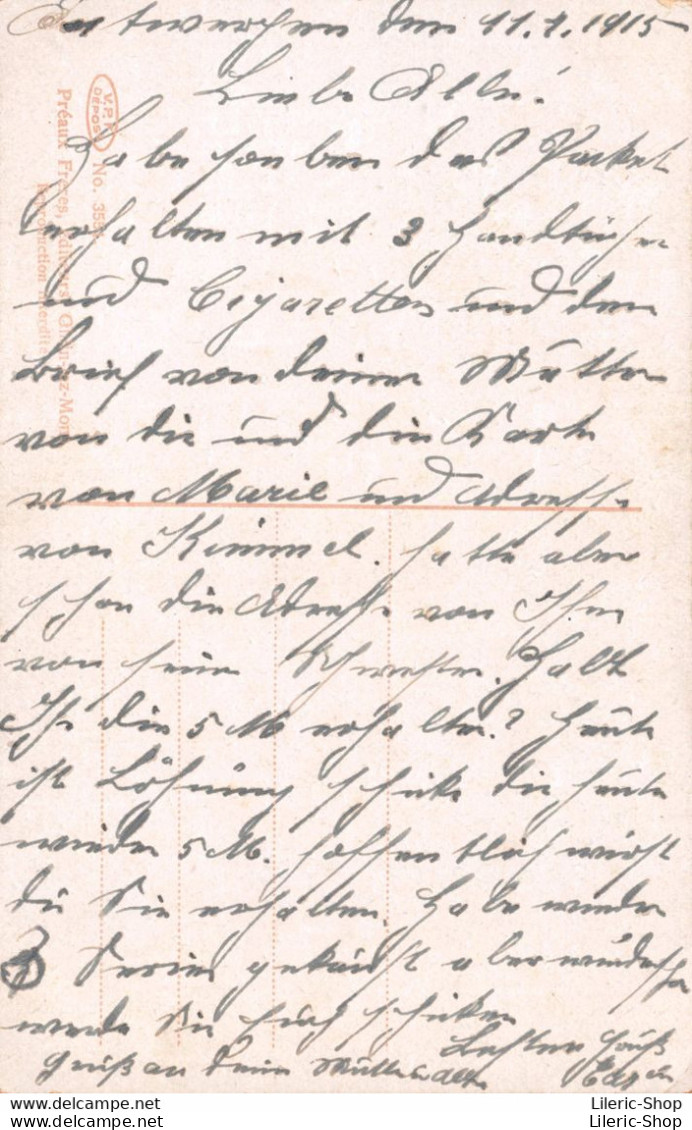 Antwerpen den 11.1.1915
Liebe Alle!
Habe soeben das Packet
erhalten mit 3 Handtücher
und Cigaretten und den
Brief von deiner Mutter
von dir und die Karte
von Marie und Adresse
von Kimmel. hatte aber
schon die Adresse von Ihm
von seine Schwester. Habt
Ihr die 5 M erhalten? Heute
ist Löhnung schicke dir heute
wieder 5 M. hoffentlich wirst
du Sie erhalten. Habe wieder
Serien gekauft aber
werde Sie Euch schicken
Besten Gruß
Gruß an deine Mutter
V.P.F.
DÉPOSÉ
No.
Préaux Frères, Éditeurs, Ghlin-lez-Mons
Reproduction interdite
Lileric-Shop
Lileric-Shop
Lileric-Shop
Lileric-Shop